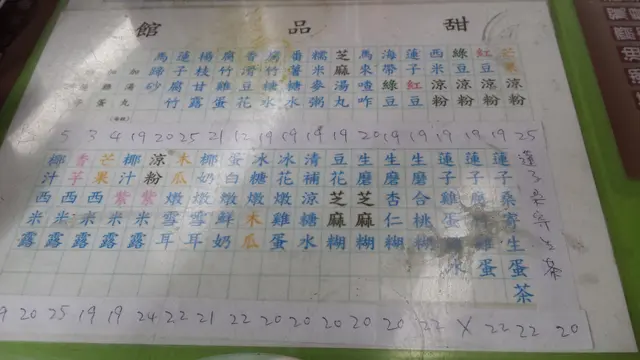 甜品館
芒果涼粉
紅豆涼粉
綠豆涼粉
西米涼粉
蓮子紅豆
海帶綠豆
馬來喳咋
芝麻湯丸
糯米麥粥
番薯糖水
竹糖水
香滑豆花
腐竹雞蛋
楊枝甘露
蓮子腐竹
馬蹄砂
5 3 4 19 20 25 21 12 19 19 18 19 20 19 19 19 19 25
蓮子桑寄生茶
蓮子桑寄生蛋茶
蓮子
蓮子雞蛋
生磨合桃糊
生磨杏仁糊
生磨芝麻糊
豆花芝麻糊
清補涼糖水
冰花燉雞蛋
冰糖燉木瓜
蛋白燉鮮奶
椰奶燉雪耳
木瓜燉雪耳
涼粉紫米露
椰汁紫米露
芒果西米露
香芋西米露
椰汁西米露
20 25 19 19 24 22 21 22 20 20 20 20 20 22 X 22 22 20